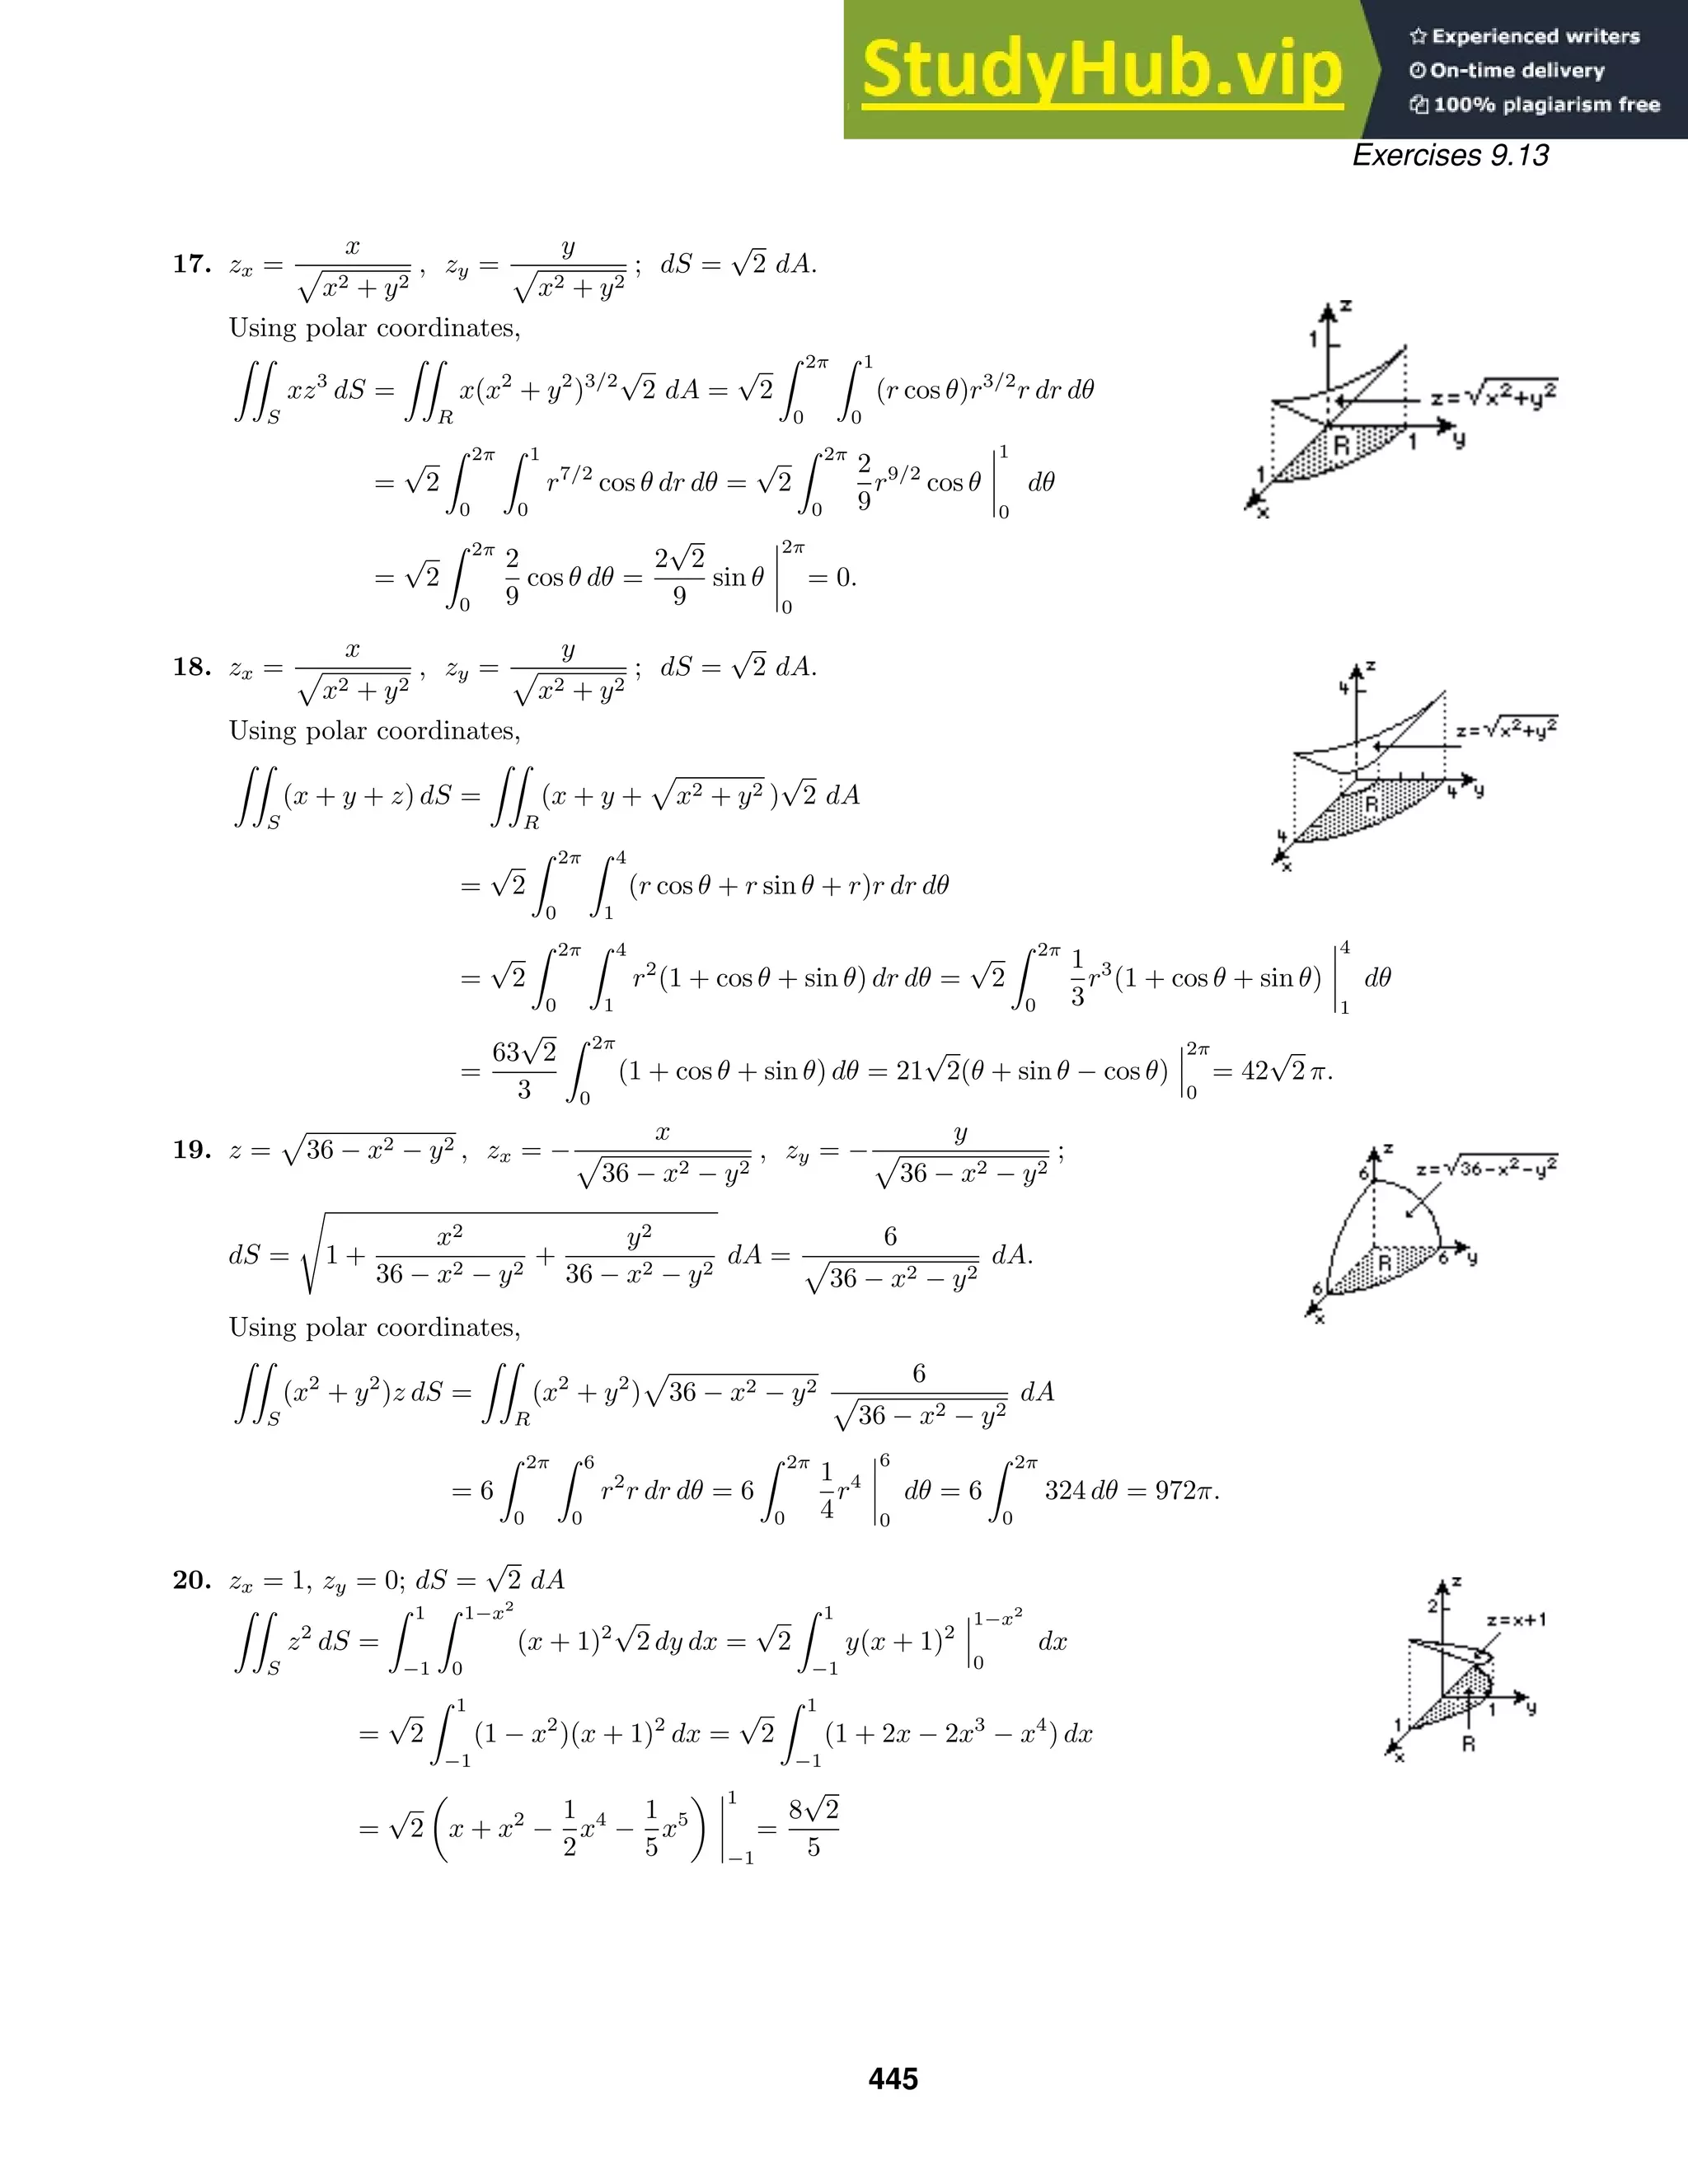 StudyHub.vip
Experienced writers
On-time delivery
100% plagiarism free
Exercises 9.13
17. z_x = x/√(x² + y²) , z_y = y/√(x² + y²) ; dS = √2 dA.
Using polar coordinates,
∬_S xz³ dS = ∬_R x(x² + y²)^{3/2}√2 dA = √2 ∫_0^{2π} ∫_0^1 (r cos θ)r^{3/2}r dr dθ
= √2 ∫_0^{2π} ∫_0^1 r^{7/2} cos θ dr dθ = √2 ∫_0^{2π} 2/9 r^{9/2} cos θ |_0^1 dθ
= √2 ∫_0^{2π} 2/9 cos θ dθ = 2√2/9 sin θ |_0^{2π} = 0.
z
1
z=√x²+y²
R
1
y
1
x
18. z_x = x/√(x² + y²) , z_y = y/√(x² + y²) ; dS = √2 dA.
Using polar coordinates,
∬_S (x + y + z) dS = ∬_R (x + y + √(x² + y²) )√2 dA
= √2 ∫_0^{2π} ∫_1^4 (r cos θ + r sin θ + r)r dr dθ
= √2 ∫_0^{2π} ∫_1^4 r²(1 + cos θ + sin θ) dr dθ = √2 ∫_0^{2π} 1/3 r³(1 + cos θ + sin θ) |_1^4 dθ
= 63√2/3 ∫_0^{2π} (1 + cos θ + sin θ) dθ = 21√2(θ + sin θ − cos θ) |_0^{2π} = 42√2 π.
z
4
z=√x²+y²
R
4
y
4
x
19. z = √(36 − x² − y²) , z_x = − x/√(36 − x² − y²) , z_y = − y/√(36 − x² − y²) ;
dS = √(1 + x²/(36 − x² − y²) + y²/(36 − x² − y²)) dA = 6/√(36 − x² − y²) dA.
Using polar coordinates,
∬_S (x² + y²)z dS = ∬_R (x² + y²)√(36 − x² − y²) 6/√(36 − x² − y²) dA
= 6 ∫_0^{2π} ∫_0^6 r²r dr dθ = 6 ∫_0^{2π} 1/4 r⁴ |_0^6 dθ = 6 ∫_0^{2π} 324 dθ = 972π.
z
6
z=√36-x²-y²
R
6
y
6
x
20. z_x = 1, z_y = 0; dS = √2 dA
∬_S z² dS = ∫_{−1}^1 ∫_0^{1−x²} (x + 1)²√2 dy dx = √2 ∫_{−1}^1 y(x + 1)² |_0^{1−x²} dx
= √2 ∫_{−1}^1 (1 − x²)(x + 1)² dx = √2 ∫_{−1}^1 (1 + 2x − 2x³ − x⁴) dx
= √2 (x + x² − 1/2 x⁴ − 1/5 x⁵) |_{−1}^1 = 8√2/5
z
2
z=x+1
1
y
1
x
R
445